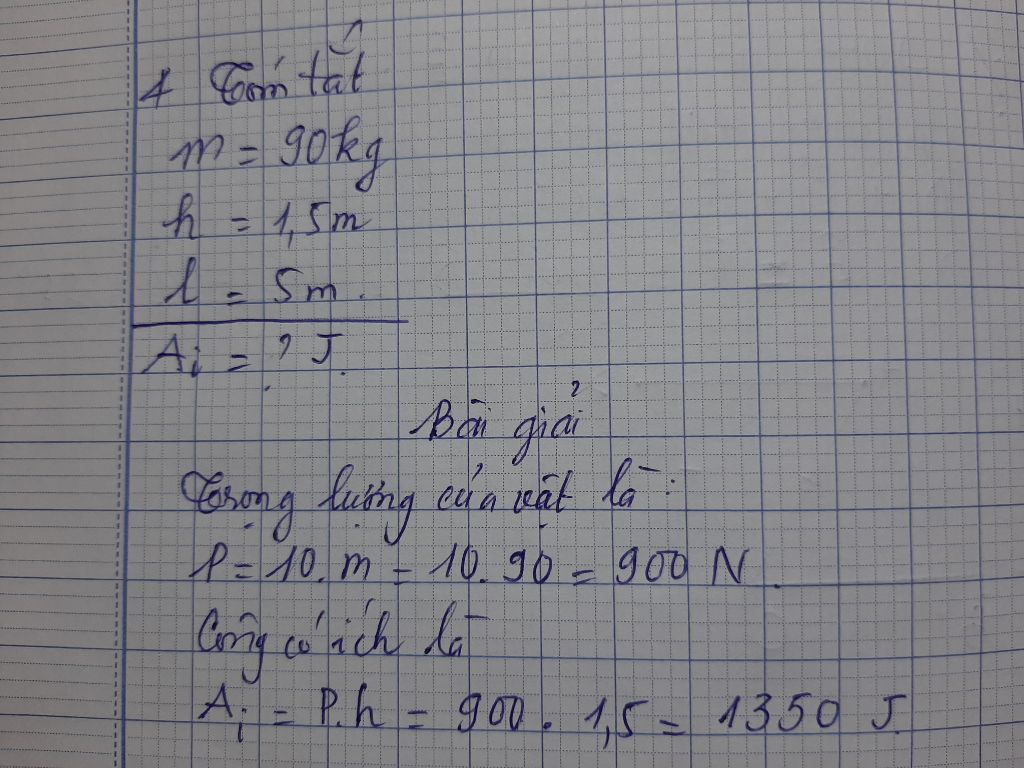 4 Tóm tắt
m = 90kg
h = 1,5m
l = 5m.
Ai = ? J.
Bài giải
Trọng lượng của vật là:
P = 10. m = 10. 90 = 900 N.
Công có ích là
Ai = P.h = 900. 1,5 = 1350 J.